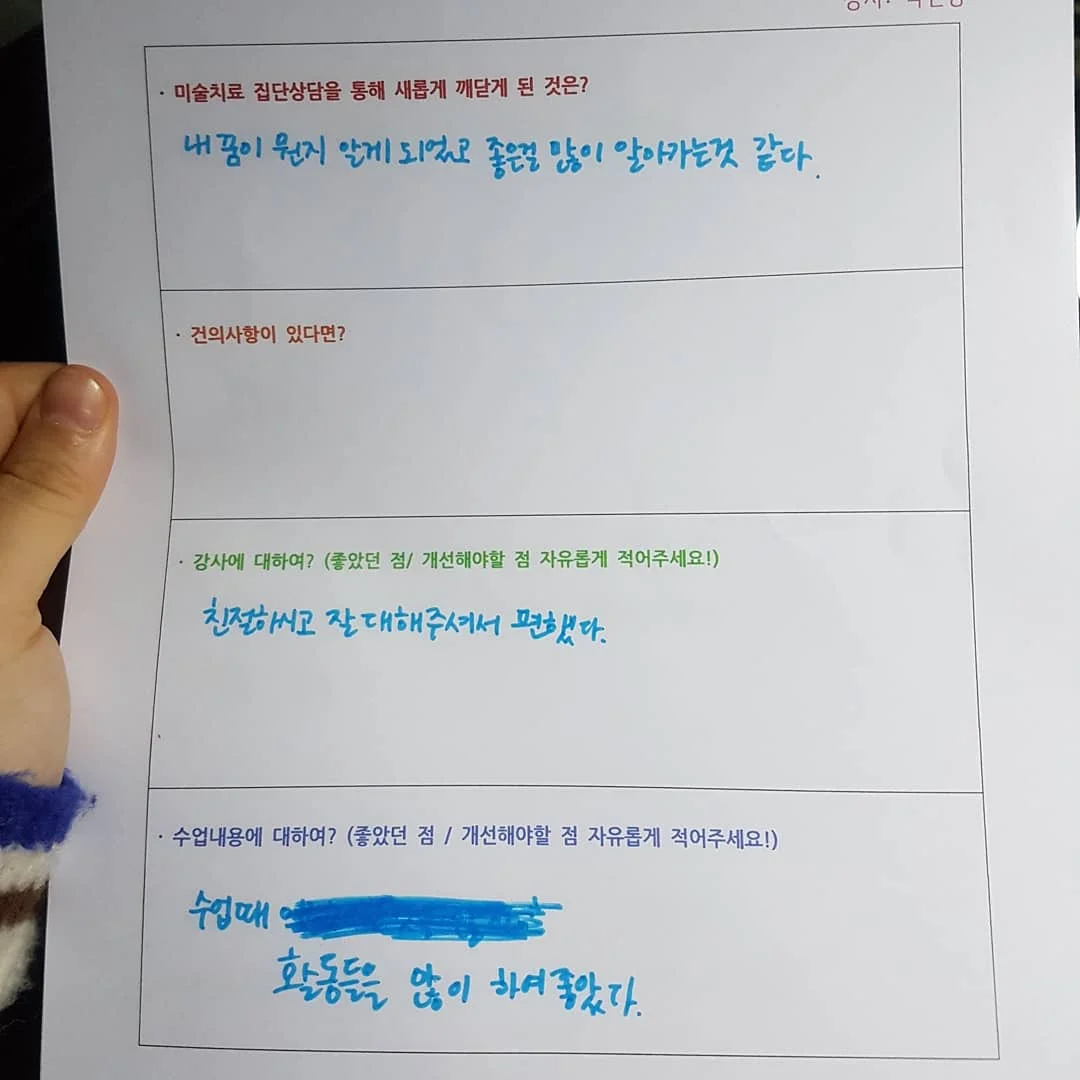 · 미술치료 집단상담을 통해 새롭게 깨닫게 된 것은?
내 꿈이 뭔지 알게 되었고 좋은걸 많이 알아가는것 같다.
· 건의사항이 있다면?
· 강사에 대하여? (좋았던 점/ 개선해야할 점 자유롭게 적어주세요!)
친절하시고 잘 대해주셔서 편했다.
· 수업내용에 대하여? (좋았던 점 / 개선해야할 점 자유롭게 적어주세요!)
수업때
활동들을 많이 하여 좋았다.